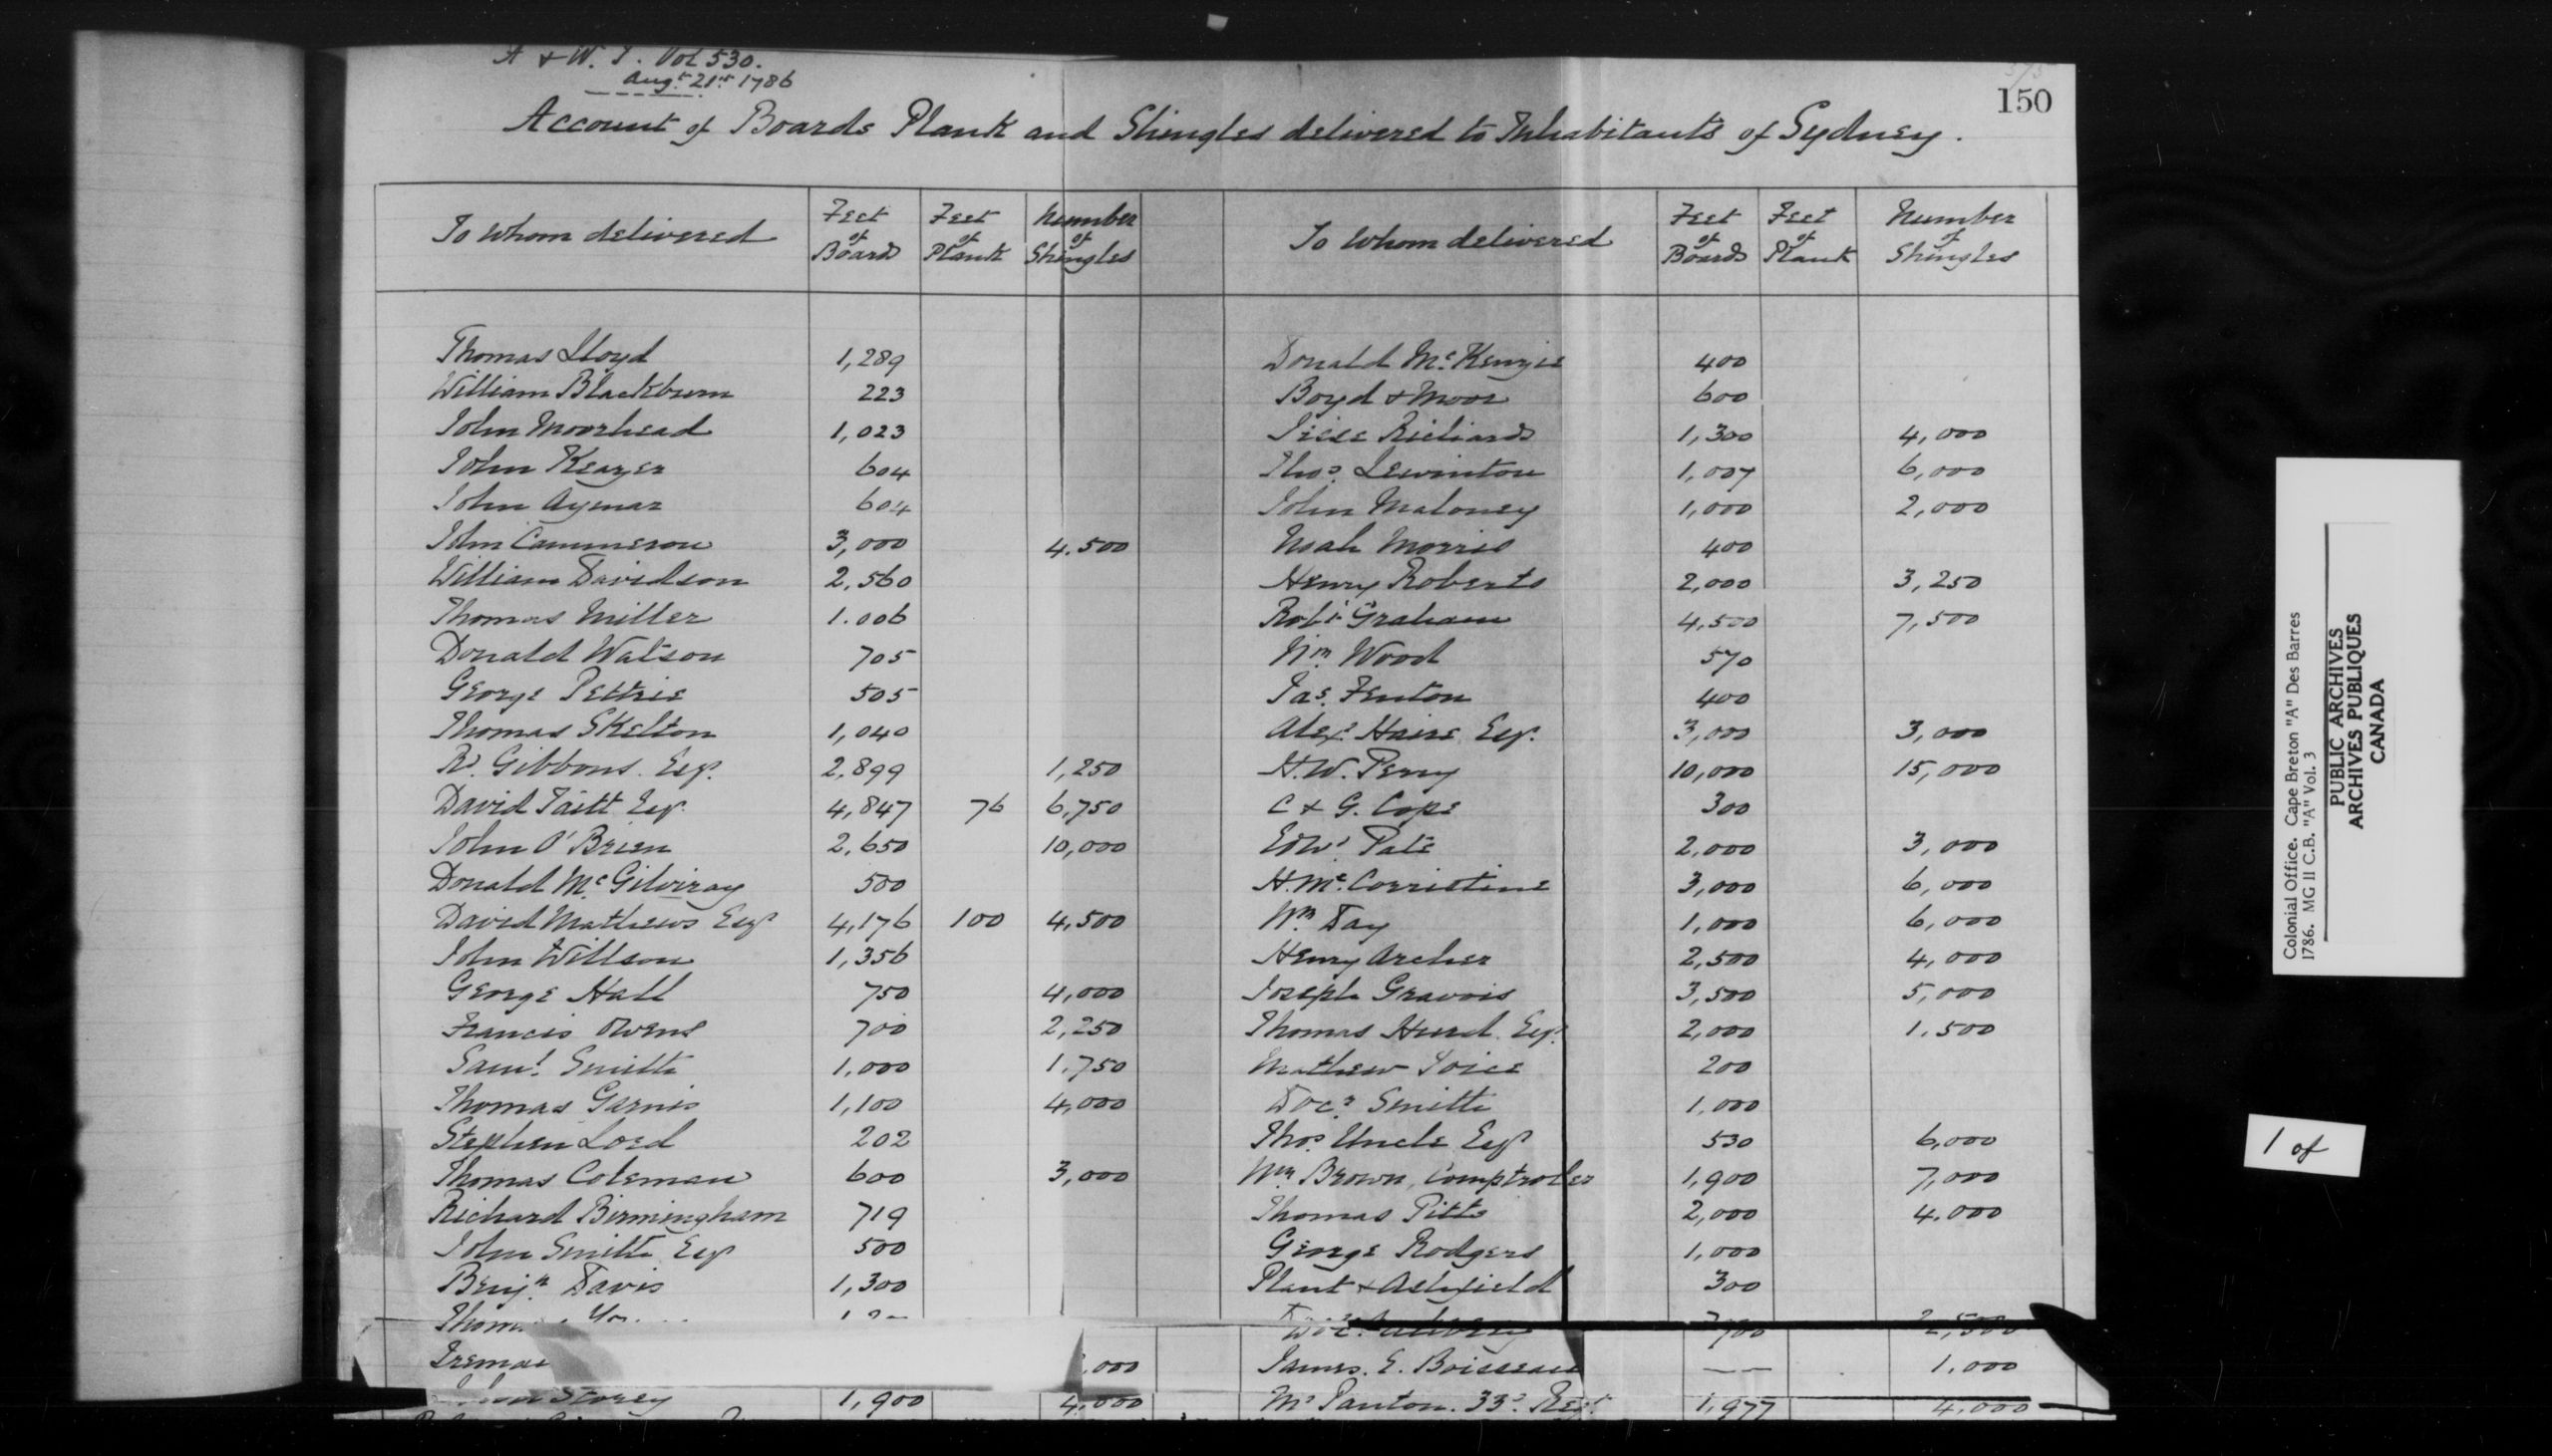 A & W. I. Vol 530.
Augt 21st 1786
150
Account of Boards Plank and Shingles delivered to Inhabitants of Sydney.
To whom delivered | Feet of Board | Feet of Plank | Number of Shingles | To whom delivered | Feet of Boards | Feet of Plank | Number of Shingles
Thomas Lloyd 1,289 Donald McKenzie 400
William Blackburn 223 Boyd & Moor 600
John Moorhead 1,023 Richards 1,300 4,000
John 604 Thos. Lewinton 1,007 6,000
John Aymar 604 John Maloney 1,000 2,000
John Cammeron 3,000 4.500 Noah Morris 400
William Davidson 2,560 Henry Roberts 2,000 3,250
Thomas Miller 1.006 Robt. Graham 4,500 7,500
Donald Watson 705 Wm. Wood 570
George Pettrie 505 Jas. Fenton 400
Thomas Skelton 1,040 Alexr. Haire Esqr. 3,000 3,000
Rd. Gibbons. Esqr. 2,899 1,250 H. W. Perry 10,000 15,000
David Taitt Esqr. 4,847 76 6,750 C & G. Cope 300
John O'Brien 2,650 10,000 Edwd Pate 2,000 3,000
Donald McGilviray 500 H. Mc.Corristine 3,000 6,000
David Mathews Esqr 4,176 100 4,500 Wm. Day 1,000 6,000
John Willson 1,356 Henry Archer 2,500 4,000
George Hall 750 4,000 Joseph Gravois 3,500 5,000
Francis Owens 700 2,250 Thomas Hurd. Esqr. 2,000 1.500
Saml. Smith 1,000 1.750 Mathew 200
Thomas 1,100 4,000 Docr. Smith 1,000
Stephen Lord 202 Thos. Uncle Esqr 530 6,000
Thomas Coleman 600 3,000 Wm Brown, Comptroler 1,900 7,000
Richard Birmingham 719 Thomas Pitts 2,000 4.000
John Smith Esqr 500 George Rodgers 1,000
Benjn. Davis 1,300 Plant & Ashfield 300
2,500
,000 James. E. Boisseau — 1.000
Storey 1,900 4,000 Mr Panton. 33d. Regt 1,977 4.000
Colonial Office. Cape Breton "A" Des Barres
1786. MG II C.B. "A" Vol. 3
PUBLIC ARCHIVES
ARCHIVES PUBLIQUES
CANADA
1 of